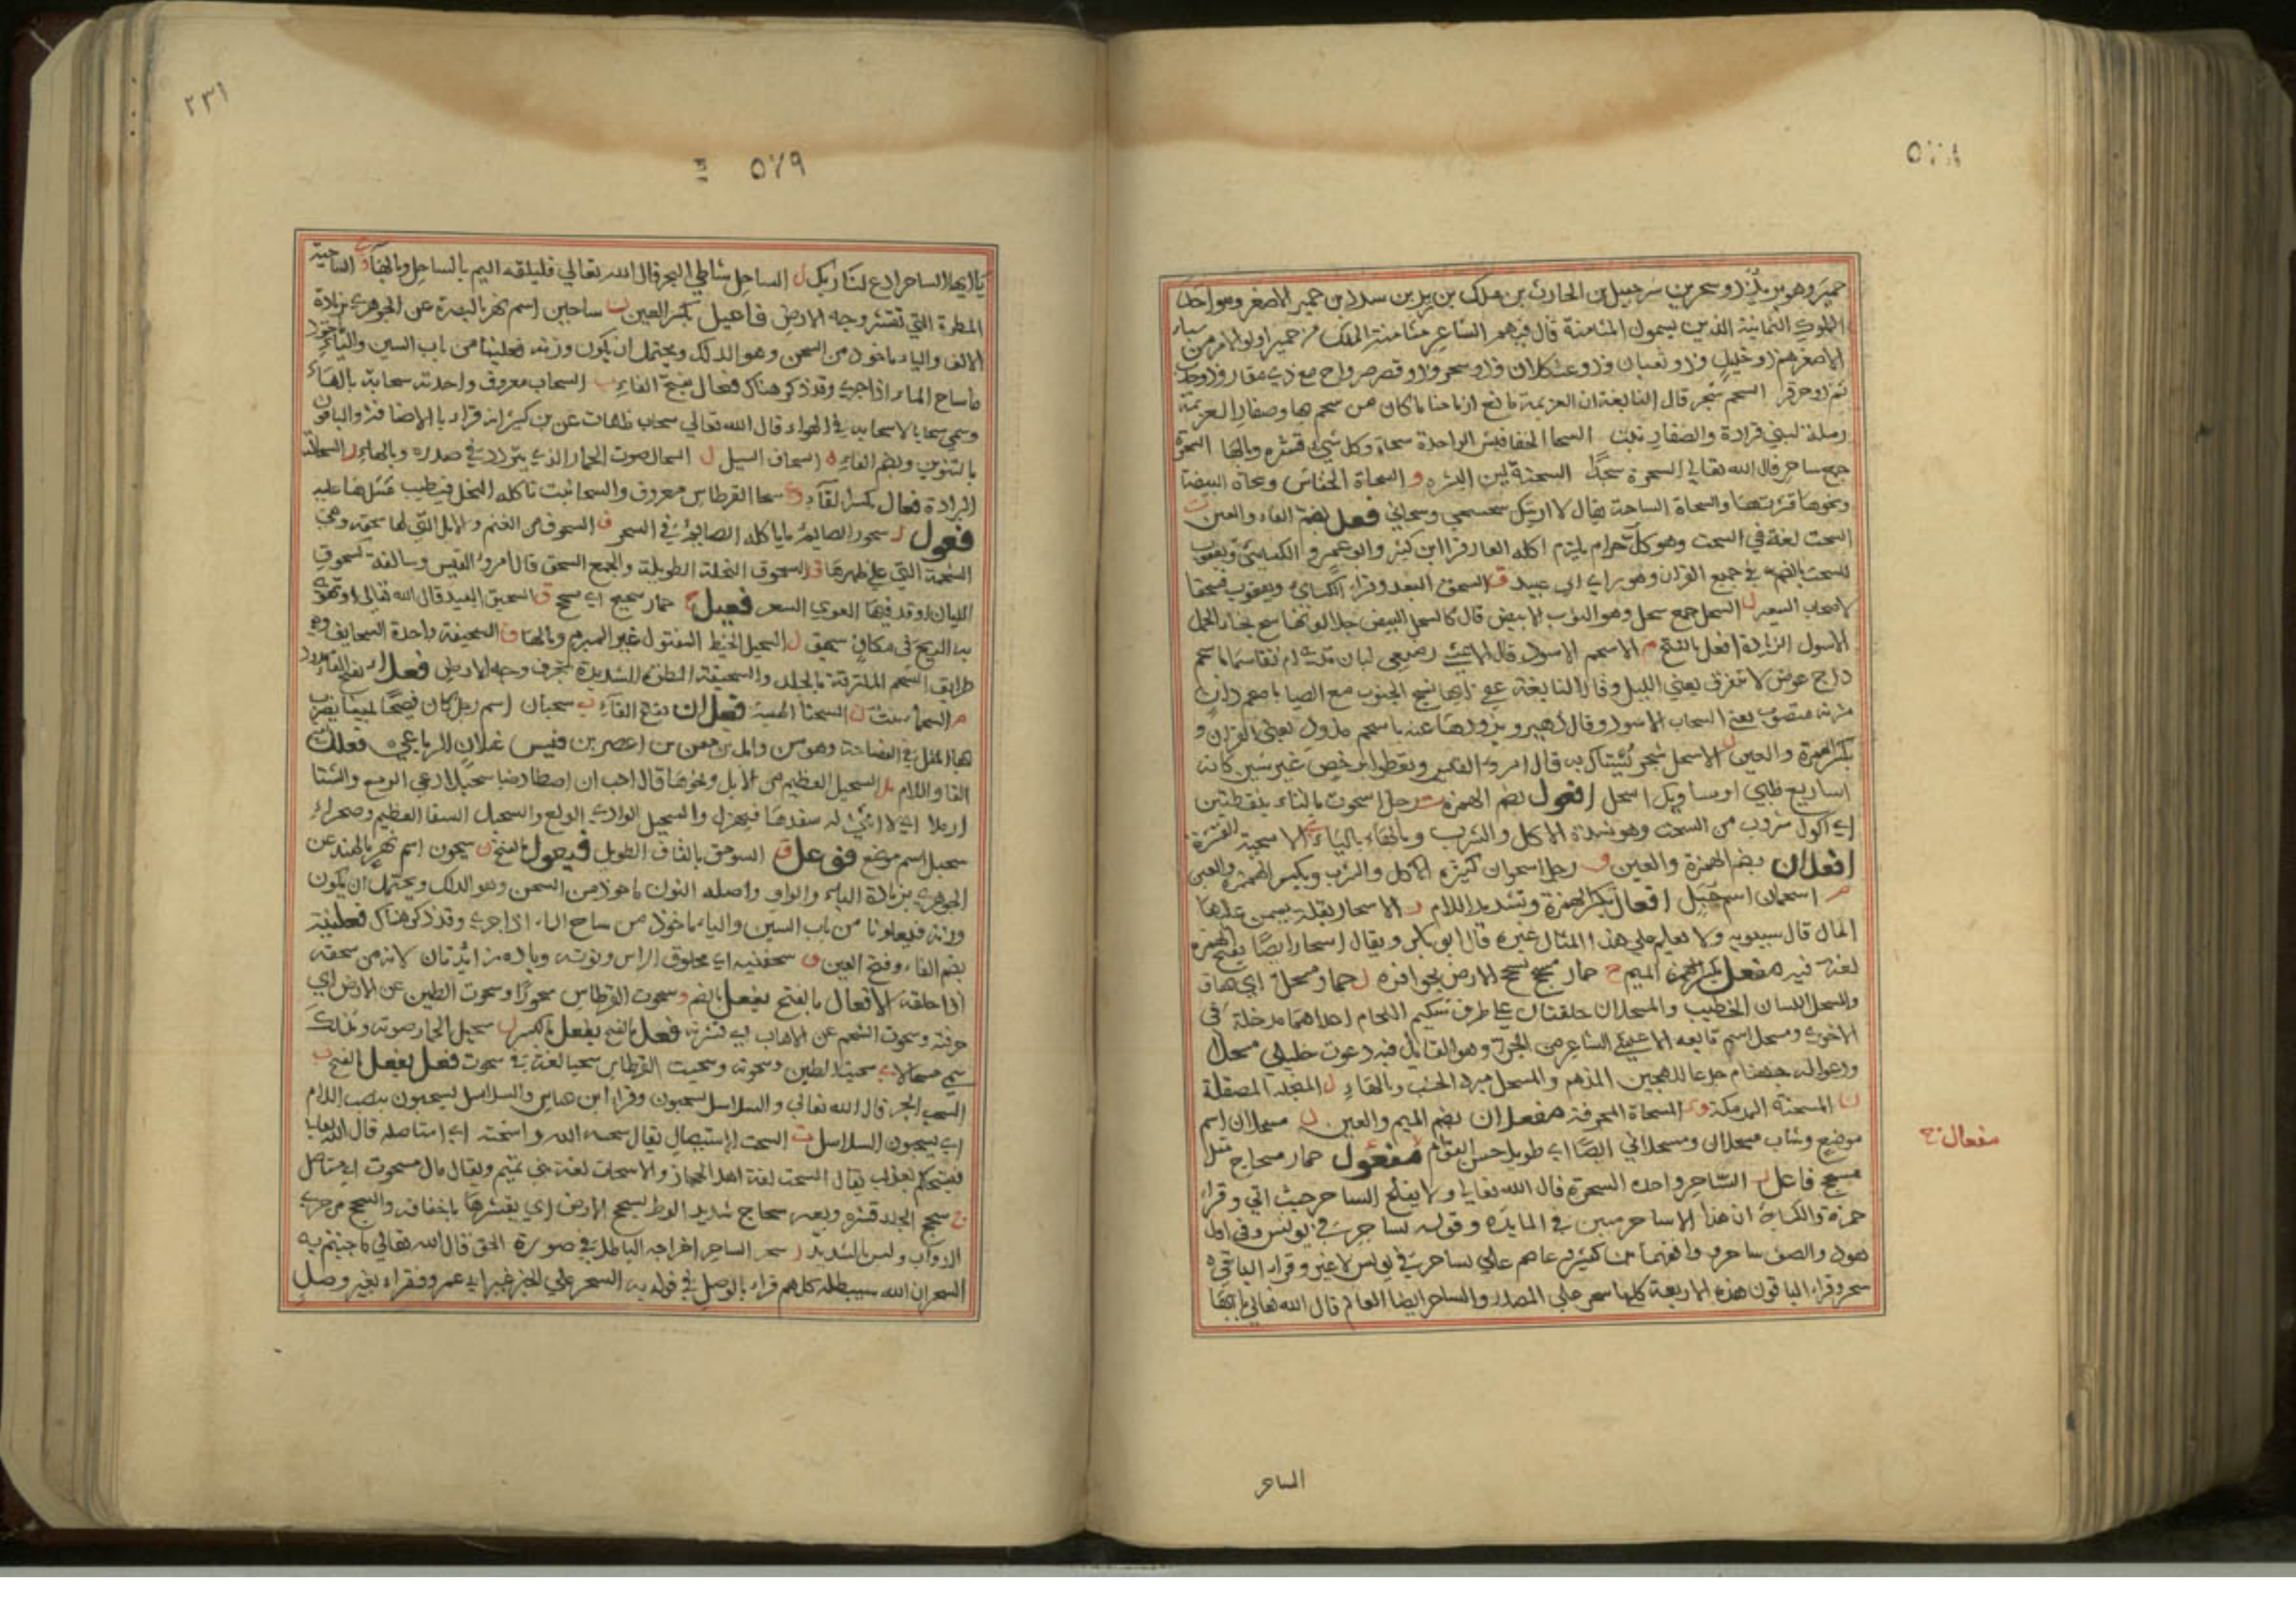 ٥٧٨
حمير وهو بريل ذو سحر بن شرحبيل بن الحارث بن ملك بن زيد بن سدد بن حمير الاصغر وهو احد
الملوك الثمانية الذين يسمون المثامنة قال فيهم الشاعر مثامنة الملك من حمير اولوا الامر من سبأ
الاصغر هم ذو خليل وذو ثعبان وذو عثكلان وذو سحر وذو قصر صرواح مع ذي مقار وذو جدن
ثم ذو حزفر السحم شجر قال النابغة ان العزيمة مانع ارماحنا ما كان من سحم بها وصفار العزيمة
رملة لبني فزارة والصفار نبت السحا الخفافيش الواحدة سحاة وكل شيء قشره وبالها السحرة
جمع ساحر قال الله تعالى السحرة سجدا السحنة لين البشره و السحاة الخفاش وسحاة البيضة
ونحوها قشرتها والسحاة الساحة يقال لا ارينك بسحسحي وسحاتي فعل بضم الفاء والعين ت
السحت لغة في السحت وهو كل حرام يلزم اكله العار قرأ ابن كثير وابو عمرو الكسائي ويعقوب
للسحت بالضم في جميع القران وهو راي ابي عبيد ق السحق البعد وقراء الكسائي ويعقوب فسحقا
لاصحاب السعير ل السحل جمع سحل وهو الثوب الابيض قال كالسحل البيض جلا لونها سح نجاء الحمل
الاسول الزيادة افعل بالفتح م الاسحم الاسود قال الاعشى رضيعي لبان ثدي ام تقاسما باسحم
داج عوض لا نتفرق يعني الليل وقال النابغة عفى ايها نسج الجنوب مع الصبا باسحم دان
مزنه متصوب يعني السحاب الاسود وقال زهير ويذودها عنه باسحم مذود يعني القرن و
بكسر الهمزة والعين ل الاسحل شجر يستاك به قال امروء القيس وتعطوا برخص غير شثن كانه
اساريع ظبي او مساويك اسحل افعول بضم الهمزة ت رجل اسحوت بالتاء بنقطتين
اي اكول شروب من السحت وهو شدة الاكل والشرب وبالهاء بالياء ي الاسحية القشرة
افعلان بضم الهمزة والعين ف رجل اسحوان كثيرة الاكل والشرب وبكسر الهمزة والعين
م اسحمان اسم جبل افعال بكسر الهمزة وتشديد اللام ر الاسحار بقلة يسمن عليها
المال قال سيبويه ولا نعلم على هذا المثال غيره قال ابو بكر ويقال اسحار ايضا بفتح الهمزة
لغة فيه مفعل بكسر الميم ج حمار مسحج يسحج الارض بحوافره ل حمار مسحل اي هاق
والمسحل اللسان الخطيب والمسحلان حلقتان على طرف شكيم اللجام احداهما مدخلة في
الاخرى ومسحل اسم تابعه الاعشى الشاعر من الجن وهو القائل فيه دعوت خليلي مسحلا
ودعوا له جهنام جدعا للهجين المذمم والمسحل مبرد الخشب وبالهاء ل المنجلة المصقلة
ن المسحنة المدمكة و المسحاة المجرفة مفعلان بضم الميم والعين ل مسحلان اسم
موضع وشاب مسحلان ومسحلاني ايضا اي طويل حسن القوام مفعول حمار مسحاج مثل
مفعال ج
مسحج فاعل ر الساحر واحد السحرة قال الله تعالى ولا يفلح الساحر حيث اتى وقرا
حمزة والكسائي ان هذا الا ساحر مبين في المايدة وقوله لساحر في يونس وفي اول
هود والصف ساحر وافقهما ابن كثير وعاصم على لساحر في يونس لا غير وقراء الباقي
سحر وقراء الباقون هذه الاربعة كلها سحر على المصدر والساحر ايضا العالم قال الله تعالى
الساحر
٢٣١
٥٧٩
يا ايها الساحر ادع لنا ربك ل الساحل شاطي البحر قال الله تعالى فليلقه اليم بالساحل وبالهاء و الساحية
المطرة التي تقشر وجه الارض فاعيل بكسر العين ن ساحين اسم نهر بالبصرة عن الجوهري بزيادة
الالف والياء ماخوذ من السحن وهو الدلك ويحتمل ان يكون وزنه فعلينا من باب السين والياء ماخوذ
ما ساح الماء اذا جرى وقد ذكر هناك فعال بفتح الفاء ب السحاب معروف واحدته سحابة بالهاء
وسمي سحابا لانسحابه في الهواء قال الله تعالى سحاب ظلمات عن بن كثير انه قراء بالاضافة والباقون
بالتنوين وبضم الفاء ف السحاف السيل ل السحال صوت الحمار الذي يتردد في صدره وبالهاء ل السحالة
البرادة فعال بكسر الفاء و سحا القرطاس معروف والسحا نبت تاكله النحل فيطيب عسلها عليه
فعول ر سحور الصايم ما ياكله الصايم في السحر ف السحوف من الغنم والابل التي لها سحفة وهي
الشحمة التي على ظهرها ق السحوق النخلة الطويلة والجمع السحق قال امروء القيس وسالفة كسحوق
الليان اوقد فيها الغوي السعر فعيل ج حمار سحيج اي مسحج ق السحيق البعيد قال الله تعالى او تهوي
به الريح في مكان سحيق ل السحيل الخيط المفتول غير المبرم وبالهاء ف السحيفة واحدة السحايف وهي
طرايق الشحم الملتزقة بالجلد والسحيفة المطرة الشديدة تجرف وجه الارض فعلا بفتح الفاء ممدود
م السحماء نبت ن السحناء الهيئة فعلان بفتح الفاء ب سحبان اسم رجل كان فصيحا لبيبا يضرب
به المثل في الفصاحة وهو من وايل بن معن بن اعصر بن قيس غيلان الرباعي فعلل بفتح
الفا واللام بل السحبل العظيم من الابل ونحوها قال احب ان اصطاد ضبا سحبلا رعى الربيع والشتا
ارملا اي لا انثى له يسفدها فيهزل والسحبل الوادي الواسع والسحبل السقا العظيم وصحراء
سحبل اسم موضع فوعل ق السوحق بالقاف الطويل فيعول بالفتح ن سيحون اسم نهر بالهند عن
الجوهري بزيادة الياء والواو واصله النون ماخوذ من السحن وهو الدلك ويحتمل ان يكون
وزنه فيعلونا من باب السين والياء ماخوذ من ساح الماء اذا جرى وقد ذكر هناك فعلنية
بضم الفاء وفتح العين ف سحفنية اي محلوق الراس ونونه وياءه زايدتان لانه من سحفه
اذا حلقه الافعال بالفتح يفعل بالضم و سحوت القرطاس سحوا وسحوت الطين عن الارض اي
جرفته وسحوت الشحم عن الاهاب اي قشرته فعل بالفتح يفعل بالكسر ل سحيل الحمار صوته وبذلك
سمي مسحلا ي سحيت الطين وسحوته وسحيت القرطاس سحيا لغة في سحوت فعل يفعل بالفتح ب
السحب الجر قال الله تعالى والسلاسل يسحبون وقراء ابن عباس والسلاسل يسحبون بنصب اللام
اي يسحبون السلاسل ت السحت الاستيصال يقال سحته الله واسحته اي استاصله قال الله تعالى
فيسحتكم بعذاب يقال السحت لغة اهل الحجاز والاسحات لغة بني تميم ويقال مال مسحوت اي مستاصل
ج سحج الجلد قشره وبعير سحاج شديد الوطء يسحج الارض اي يقشرها باخفافه والسحج من جري
الدواب وليس بالشديد ر سحر الساحر اخراجه الباطل في صورة الحق قال الله تعالى ما جئتم به
السحر ان الله سيبطله كلهم قراء بالوصل في قوله به السحر على الخبر غير ابي عمرو فقراء بغير وصل